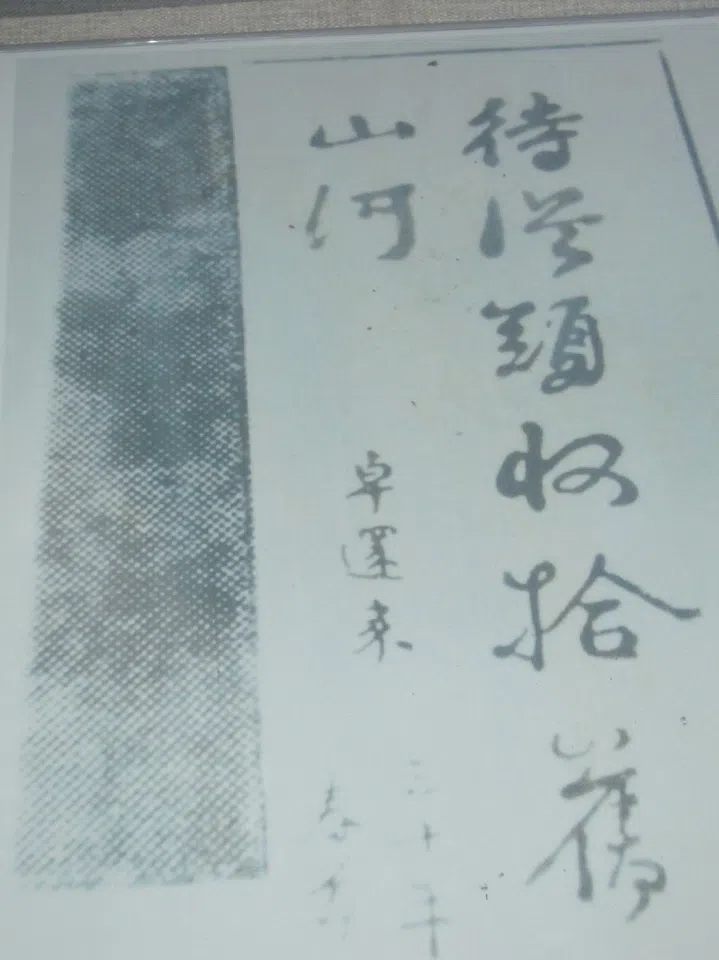 待從頭收拾舊
山河
卓還來
三十年
春